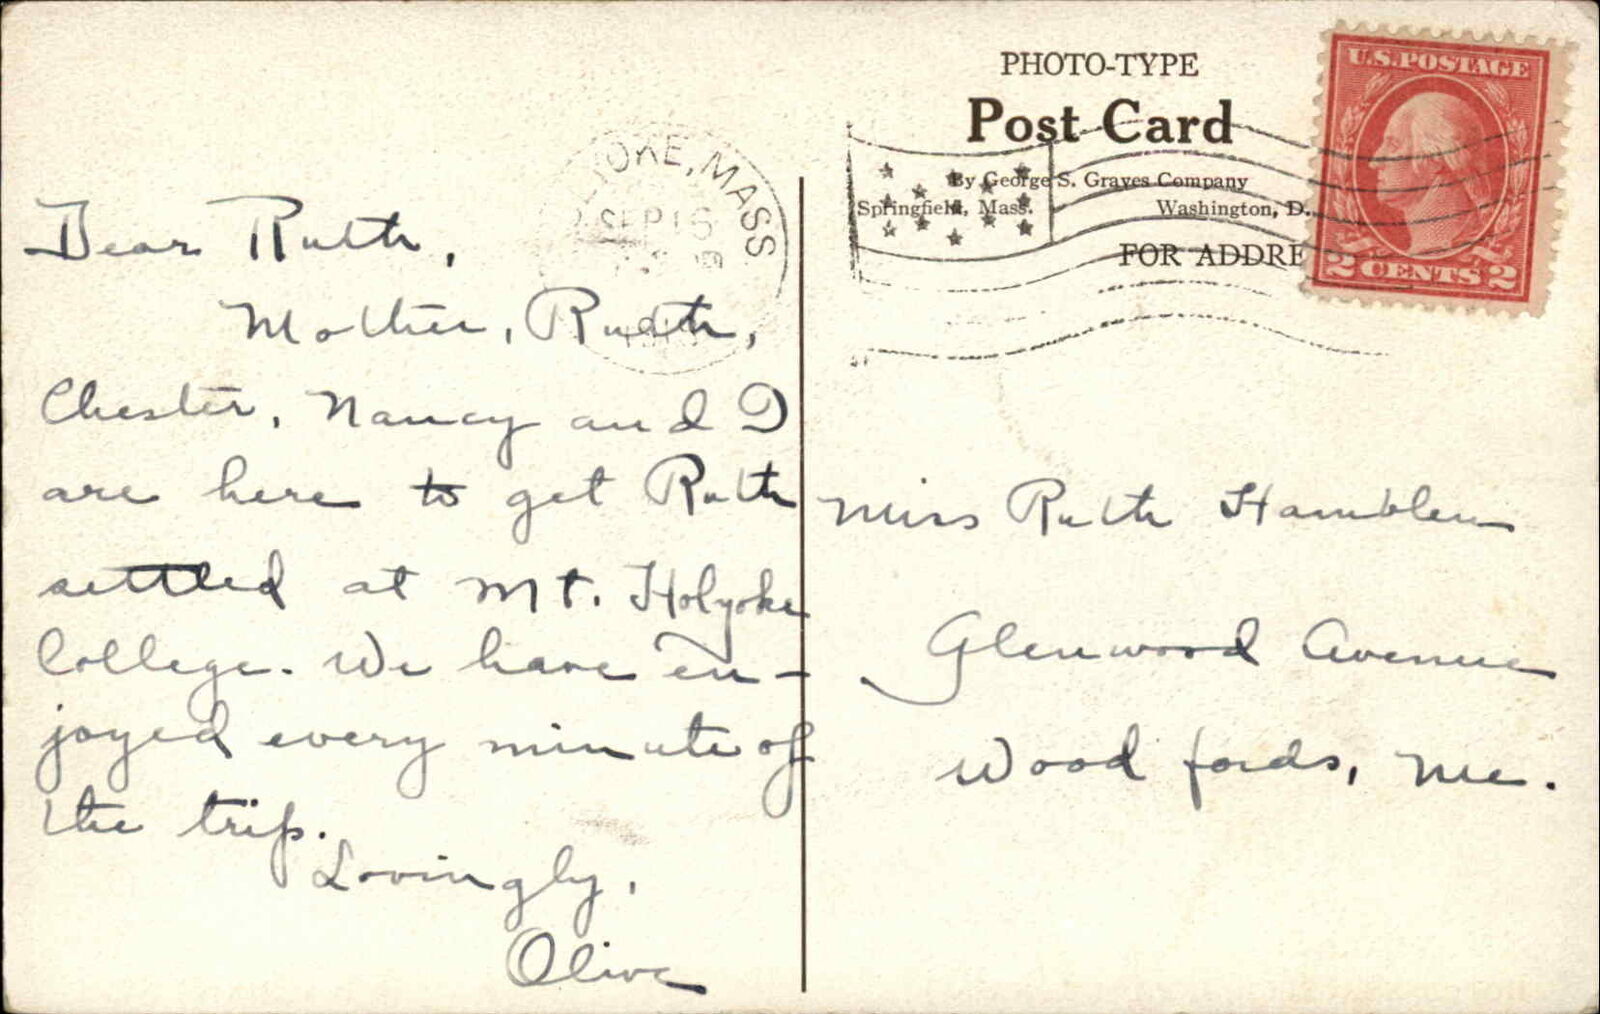 PHOTO-TYPE
Post Card
By George S. Graves Company
Springfield, Mass. Washington, D.
FOR ADDRE
U.S. POSTAGE
2 CENTS 2
OKE, MASS
SEP 16
Dear Ruth,
Mother, Ruth,
Chester, Nancy and I
are here to get Ruth
settled at Mt. Holyoke
College. We have en-
joyed every minute of
the trip.
Lovingly,
Olive
Miss Ruth Hamblen
Glenwood Avenue
Woodfords, Me.